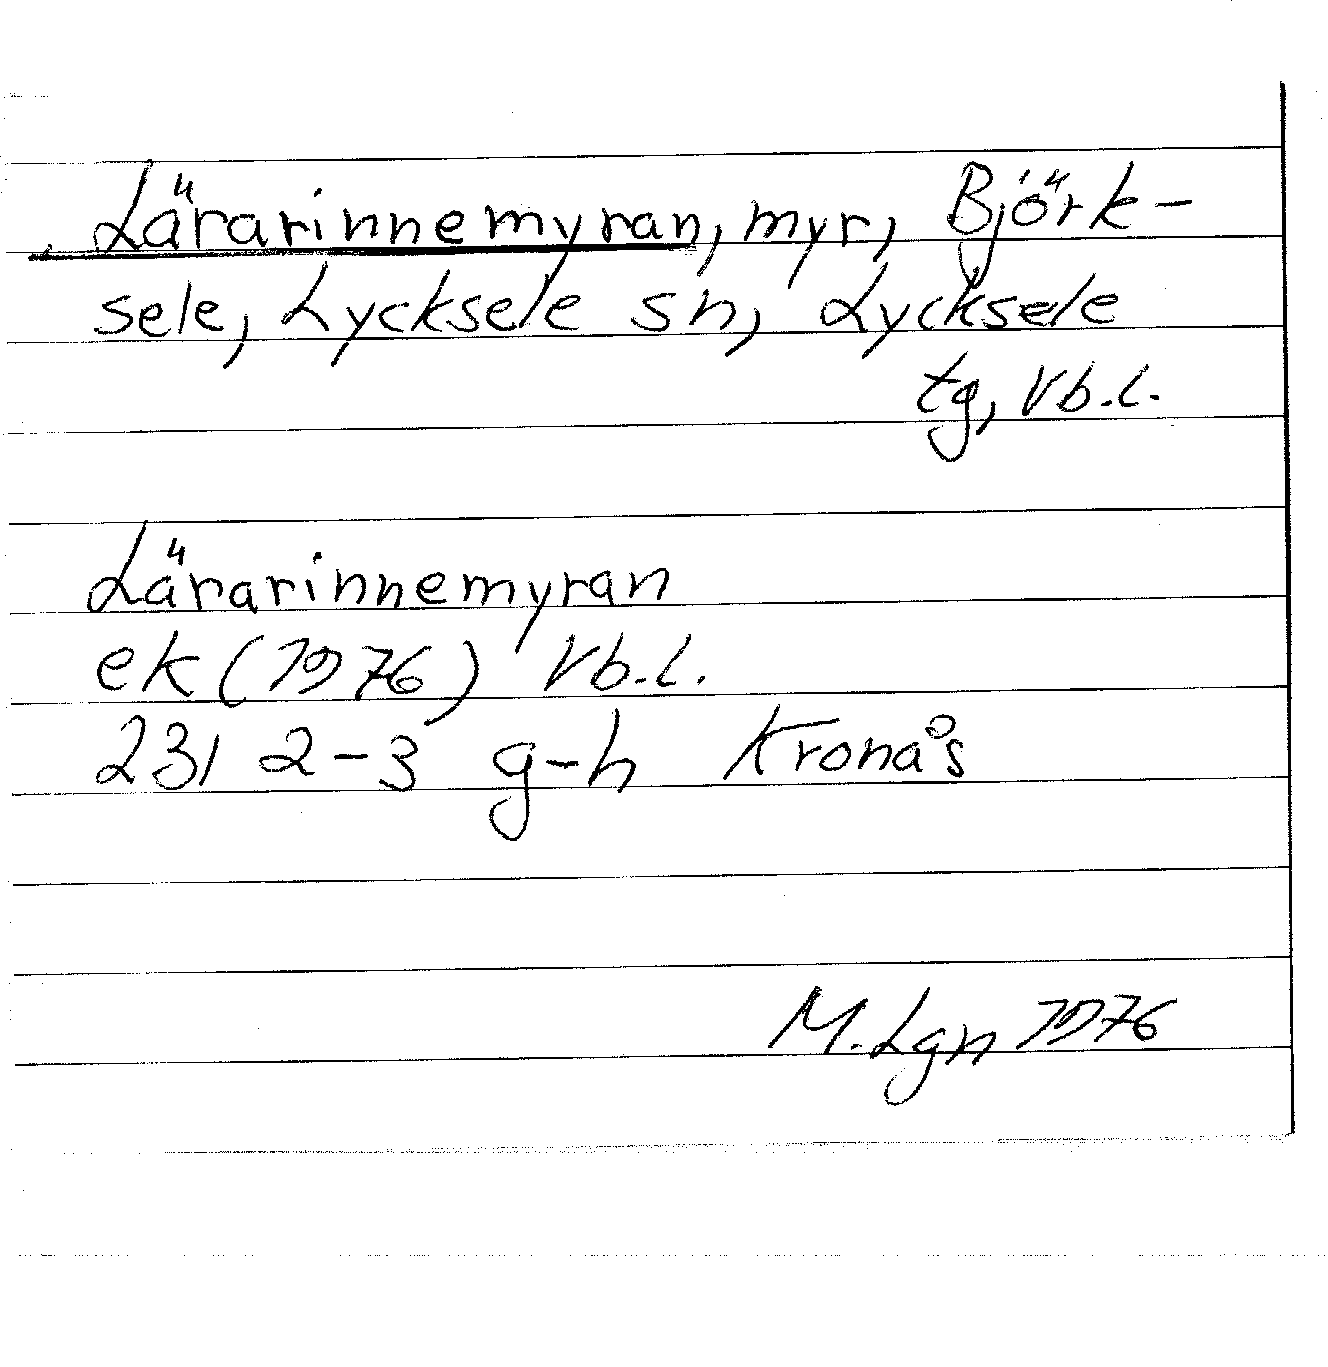 Lärarinnemyran, myr, Björk-
sele, Lycksele sn, Lycksele
tg, Vb.l.
Lärarinnemyran
ek (1976) Vb.l.
231 2-3 g-h Kronås
M. Lgn 1976